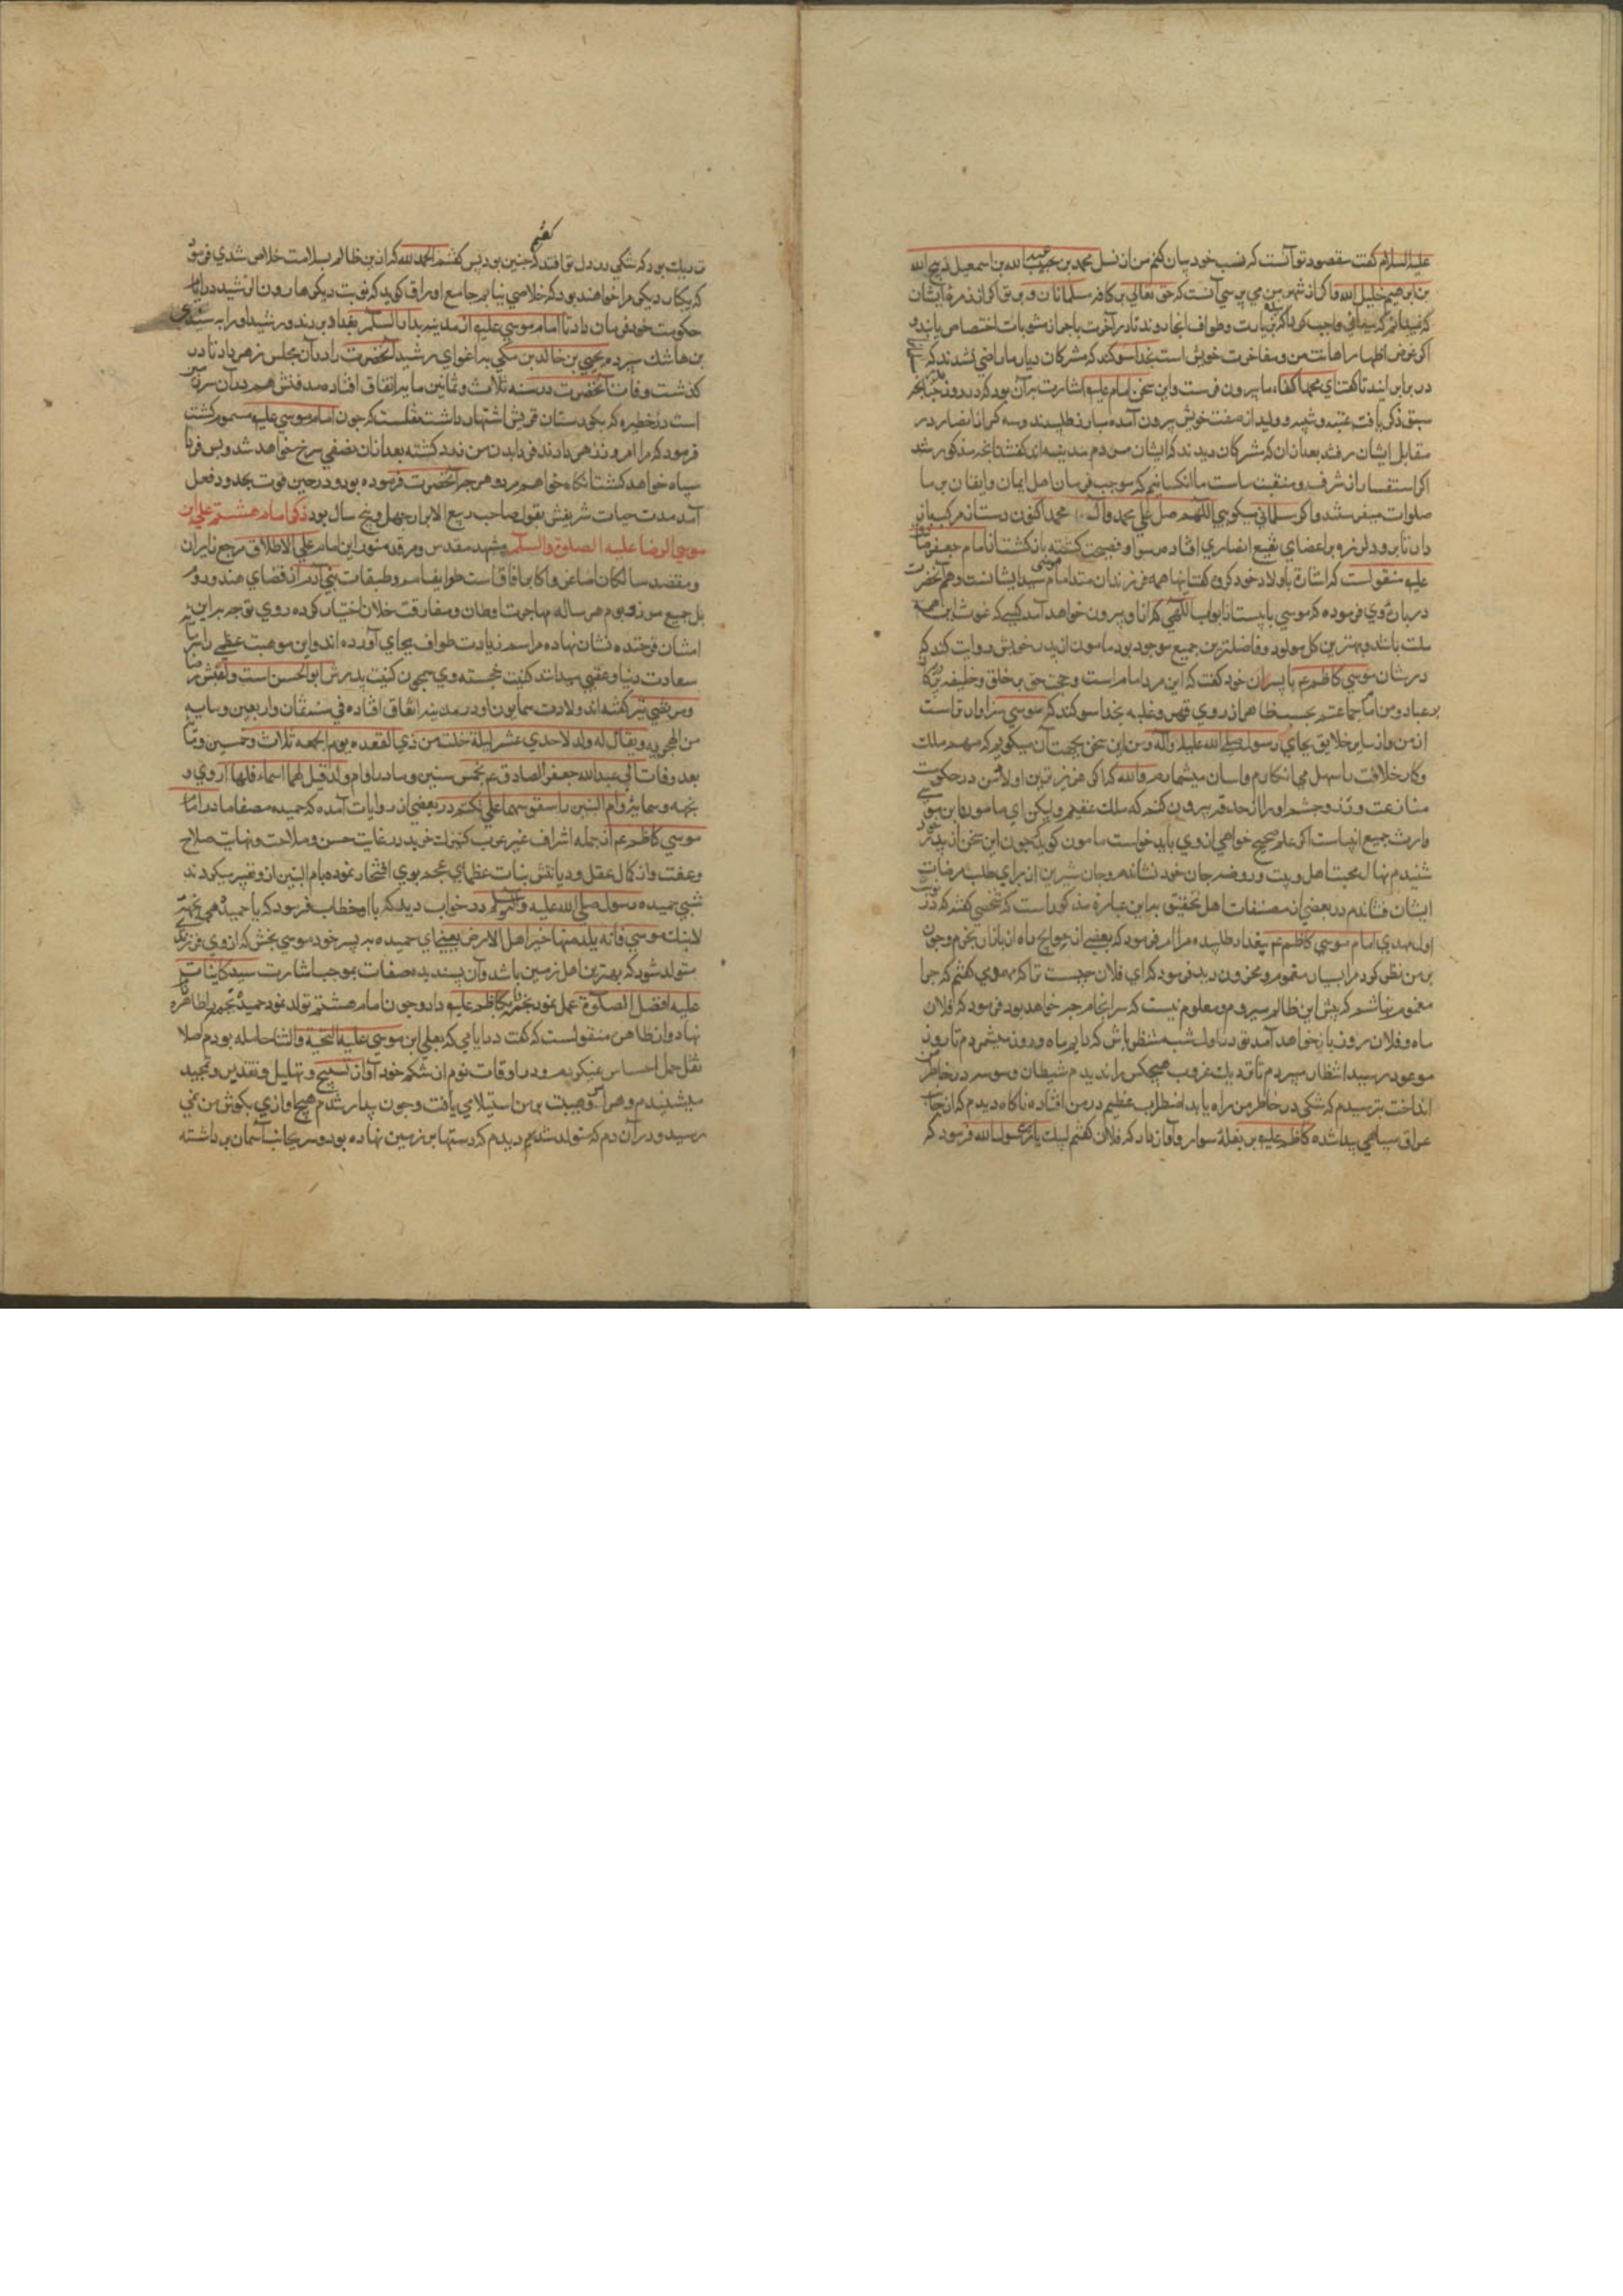 علیه السلام کفت مقصود تو آنست که نسب خود بیان کنم من از نسل محمد بن عبدالله بن اسمعیل ذبیح الله
بن ابرهیم خلیل الله و اگر از شهر من می پرسی آنست که حق تعالی بر کافه مسلمانان و بر تو اگر از زمره ایشان
اگر غرض اظهار اهانت من و مفاخرت خویش است بخدا سوکند که مشرکان دیار ما راضی نشدند که
در برابر ایند تا کفت ای محمد اکفاء ما بیرون فرست و این سخن امام علیه اشارت بر آن بود که در روز
سبق ذکر یافت عتبه و شیبه و ولید از صف خویش بیرون آمده مبارز طلبیدند و سه کس از انصار در
مقابل ایشان رفتند بعد از ان که مشرکان دیدند که ایشان مردم مدینه اند کفتند انچه مذکور شد
اکر استفسار از شرف و منقبت ماست ما انکسانیم که بموجب فرمان اهل ایمان و ایقان بر ما
صلوات میفرستند و اکر مسلمانی میکویی اللهم صل علی محمد و آل محمد اکنون دست از مرکب باز
دار تا برود لرزه بر اعضای نقیع انصاری افتاده رسوا و فضیحت کشته باز کشت از امام جعفر
علیه منقولست که اشارة باولاد خود کرد و کفت اینها همه فرزندان منند اما موسی سید ایشانست و هم آنحضرت
در باره وی فرموده که موسی بابیست از ابواب اللهی که از او بیرون خواهد آمد کسی که غوث این
ملت باشد و بهترین کل مولود و فاضلترین جمیع موجود بود مامون از پدر خویش روایت کند که
در شان موسی کاظم عم با پسران خود کفت که این مرد امام است و حجت حق بر خلق و خلیفه
بر عباد و من امام جماعتم بحسب ظاهر از روی قهر و غلبه بخدا سوکند که موسی سزاوارتر است
از من و از سایر خلایق بجای رسول صلی الله علیه و آله و من این سخن بجهت آن میکویم که مهم ملک
و کار خلافت را سهل می انکارم و اسان میشمارم والله که اکر عزیزترین اولاد من در حکومت
منازعت ورزد چشم او را از حدقه بیرون کنم که ملک عقیم ولیکن ای مامون این
وارث جمیع انبیاست اکر علم صحیح خواهی از وی باید خواست مامون کوید که چون این سخن از پدر
شنیدم نهال محبت اهل بیت در روضه جان خود نشاندم و جان شیرین از برای طلب مرضات
ایشان فشاندم در بعضی از مصنفات اهل تحقیق بر این عبارة مذکور است که شخصی کفت که در
اول مهدی امام موسی کاظم عم ببغداد طلبیده مرا امر فرمود که بعضی از حوایج راه از بازار بخرم و چون
بر من نظر کرد مرا بسیار مغموم و محزون دید فرمود که ای فلان چیست ترا که مهموم کفتم که چرا
مغموم نباشم که پیش این ظالم میروم و معلوم نیست که سرانجام چه خواهد بود فرمود که فلان
ماه و فلان روز باز خواهد آمد تو در اول شب منتظر باش که دایم ماه و روز میشمردم تا روز
موعود رسید انتظار میبردم تا نزدیک غروب هیچکس را ندیدم شیطان وسوسه در خاطر من
انداخت بترسیدم که شکی در خاطر من راه یابد اضطراب عظیم در من افتاده ناکاه دیدم که از جانب
عراق سیاهی پیدا شده کاظم علیه بر بغله سوار و آواز داد که فلان کفتم لبیک یا بن رسول الله فرمود که
نزدیک بود که شکی در دل تو افتد که چنین بود پس کفتم الحمد لله که از بن ظالم بسلامت خلاص شدی فرمود
که یکبار دیکر مرا خواهند بود که خلاصی نیابم جامع اوراق کوید که نوبت دیکر هارون الرشید در ایام
حکومت خود فرمان داد تا امام موسی علیه از مدینه بدار السلام بغداد بردند و رشید او را به سندی
بن هاشک سپرد و یحیی بن خالد برمکی به اغوای رشید آنحضرت را در آن مجلس زهر داد تا در
کذشت وفات آنحضرت در سنه ثلاث و ثمانین مایه اتفاق افتاده مدفنش هم در آن سرزمین
است در خطیره که بکورستان قریش اشتهار داشت نقلست که چون امام موسی علیه مسموم کشت
فرمود که مرا امروز زهر دادند فردا بدن من زرد کشته بعد از ان نصفی سرخ خواهد شد و پس فردا
سیاه خواهد کشت انکاه خواهم مرد و هر چه آنحضرت فرموده بود در حین فوت بحد و فعل
آمد مدت حیات شریفش بقول صاحب ربیع الابرار چهل و پنج سال بود ذکر امام هشتم علی ابن
موسی الرضا علیه الصلوة والسلم مشهد مقدس و مرقد منور این امام علی الاطلاق مرجع زایران
و مقصد سالکان اصاغر و اکابر افاق است طوایف امم و طبقات بنی آدم از اقصای هند و روم
بل جمیع مرز و بوم هر ساله مهاجرت اوطان و مفارقت خلان اختیار کرده روی توجه بر این
استان فرخنده نشان نهاده مراسم زیارت طواف بجای آورده اند و این موهبت عظمی را
سعادت دنیا و عقبی میدانند کنیت خجسته وی همچون کنیت پدرش ابوالحسن است و لقبش رضا
و مرتضی نیز کفته اند ولادت همایون او در مدینه اتفاق افتاده فی سنه ثمان و اربعین و مایه
من الهجریه و یقال له ولد لاحدی عشر لیلة خلت من ذی القعده یوم الجمعه ثلاث و خمسین و مایه
بعد وفات ابی عبدالله جعفر الصادق عم بخمس سنین و مادر او ام ولد قیل لها اسماء فلها اروی و
نجمه و سمانه و ام البنین در بعضی از روایات آمده که حمیده مصفا مادر امام
موسی کاظم عم از جمله اشراف غیر عرب کنیزک خرید در غایت حسن و ملاحت و نهایت صلاح
و عفت و از کمال عقل و دیانتش بنات عظمای عجم بوی افتخار نموده بام البنین از و تعبیر میکردند
شبی حمیده رسول صلی الله علیه و آله در خواب دید که با او خطاب فرمود که یا حمیده هبی نجمه
لابنک موسی فانه یلد منها خیر اهل الارض یعنی ای حمیده به پسر خود موسی بخش که از وی فرزندی
متولد شود که بهترین اهل زمین باشد و آن پسندیده صفات بموجب اشارت سید کاینات
علیه افضل الصلوة عمل نمود نجمه را بکاظم علیه داد و چون امام هشتم تولد نمود حمیده نجمه را طاهره
نام نهاد و از طاهره منقولست که کفت در ایامی که بعلی ابن موسی علیه التحیة والثنا حامله بودم اصلا
ثقل حمل احساس نمیکردم و در اوقات نوم از شکم خود آواز تسبیح و تهلیل و تقدیس و تمجید
میشنیدم و هراس و هیبت بر من استیلا می یافت و چون بیدار شدم هیچ اوازی بکوش من نمی
رسید و در آن دم که متولد شد دیدم که دستها بر زمین نهاده بود و سر بجانب آسمان برداشته